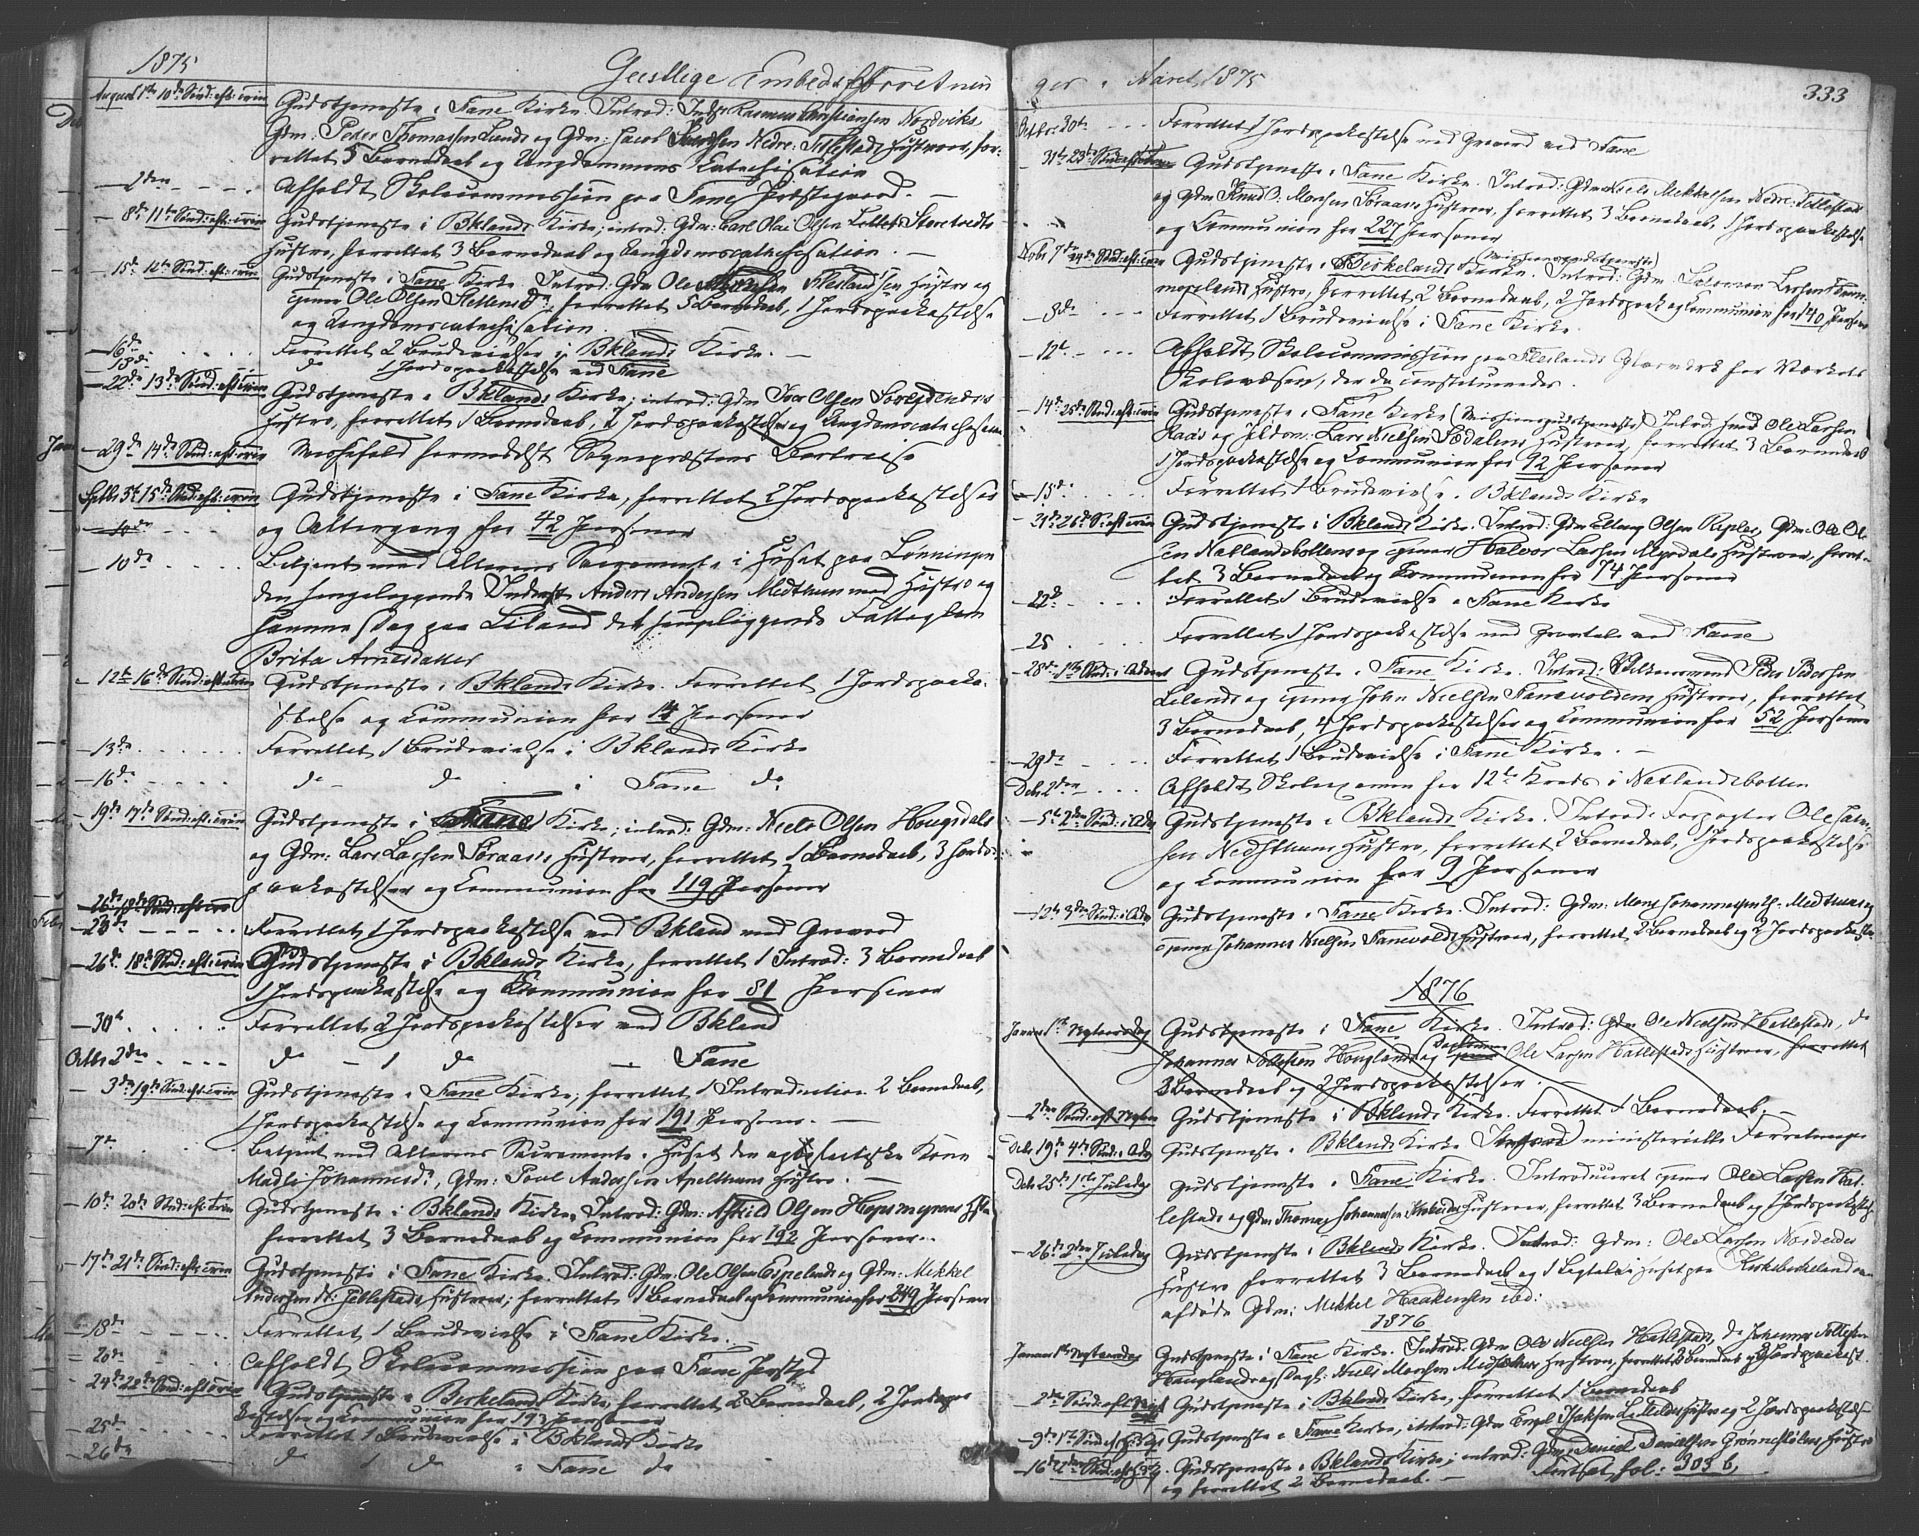 1875
Geistlige Embedsforretnin
August 1ste 10de Sønd: eft: trin
Gudstjeneste i Fane Kirke. Introd: Inds: Rasmus Christiansen Nordviks
Gdm: Peder Thomassen Lunds og Gdm: Jacob Nedre: Titlestads Hustruer, for-
rettet 5 Barnedaab og Ungdommens Catechisation
— 2den - - - -
Afholdt Skolecommission paa Fane Præstegaard. —
— 8de 11te Sønd: eft: trin
Gudstjeneste i Bklands Kirke; introd: Gdm: Carl Olai Olsen Storetvedts
Hustro, forrettet 3 Barnedaab og Ungdomscatechisation. —
— 15de 12te Sønd: eft: trin
Gudstjeneste i Fane Kirke Introd: Gdm Ole Fleslandsen Hustro og
Ole Olsen forrettet 5 Barnedaab, 1 Jordspaakastelse
og Ungdomscatechisation.
— 16de . . . . .
Forrettet 2 Brudevielser i Bklands Kirke. —
do 1 Jordspaakastelse ved Fane
— 22de 13de Sønd: eft: trin
Gudstjeneste i Bklands Kirke; introd: Gdm Iver Olsen
Hustro, forrettet 1 Barnedaab, 2 Jordspaakastelser og Ungdomscatechisation
— 29de 14de Sønd: eft: trin
Messefald formedelst Sognepræstens Bortreise
Septbr 5te 15de Sønd: eft: trin
Gudstjeneste i Fane Kirke, forrettet 2 Jordspaakastelser
og Altergang for 42 Personer
— 10de . . . . .
Betjent med Alterens Sacramente i Huset paa Lønningen
den sengeliggende Inderst Anders Andersen Midthun med Hustro og
samme Dag paa Liland det sengeliggende Fattiglem
Brita Arnesdatter
— 12te 16de Sønd: eft: trin
Gudstjeneste i Bklands Kirke. Forrettet 1 Jordspaaka-
stelse og Communion for 14 Personer
— 13de . . . . .
Forrettet 1 Brudevielse i Bklands Kirke
— 16de . . . . .
do do i Fane do
— 19de 17de Sønd: eft: trin
Gudstjeneste i Fane Kirke; introd: Gdm: Neels Olsen Hougsdals
og Gdm: Lars Larsen Søraas's Hustruer, forrettet 1 Barnedaab, 3 Jords-
paakastelser og Communion for 119 Personer
— 26de 18de Sønd: eft: trin
— 23de - - - -
Forrettet 1 Jordspaakastelse ved Bkland med Gravord
— 26de 18de Sønd: eft: trin
Gudstjeneste i Bklands Kirke, forrettet 1 Introd: 3 Barnedaab
1 Jordspaakastelse og Communion for 81 Personer
— 30te . . . . .
Forrettet 2 Jordspaakastelser ved Bkland
Octbr 2den - - - -
do — 1 do — Fane
— 3de 19de Sønd: eft: trin
Gudstjeneste i Fane Kirke, forrettet 1 Introduction 2 Barnedaab,
1 Jordspaakastelse og Communion for 191 Personer. —
— 7de . . .
Betjent med Alterens Sacramente i Huset den Kone
Madli Johannesd., Gdm: Poul Andersen Apelthuns Hustro. —
— 10de 20de Sønd: eft: trin
Gudstjeneste i Bklands Kirke, Introd: Gdm: Olsen Hopsmyrens Hstr
forrettet 3 Barnedaab og Communion for 192 Personer. —
— 17de 21de Sønd: eft: trin
Gudstjeneste i Fane Kirke. Introd: Gdm: Ole Olsen Espelands og Gdm: Mikkel
Andersen N: Titlestads Hustruer; forrettet 1 Barnedaab og Communion for 249 Personer
— 18de . . . . .
Forrettet 1 Brudevielse i Fane Kirke. —
— 20de
Afholdt Skolecommission paa Fane Præstgd
— 24de 22de Sønd: eft: trin
Gudstjeneste i Birkelands Kirke, forrettet 2 Barnedaab, 2 Jordspaa-
kastelser og Communion for 193 Personer
— 25de
Forrettet 1 Brudevielse i Bklands Kirke
— 26de
do 1 do i Fane do
ger i Aaret 1875
333
Octbr: 30te - - -
Forrettet 1 Jordspaakastelse med Gravord ved Fane
— 31te 23de Sønd: eft: trin
Gudstjeneste i Fane Kirke. Introd: Gdm Niels Mikkelsen Nedre: Titlestad
og Gdm Knud Monsen Søraas's Hustruer, forrettet 3 Barnedaab, 1 Jordspaakastelse
og Communion for 227 Personer
Novbr 7de 24de Sønd: eft: trin
Gudstjeneste i Birkelands Kirke (Missionsgudstjeneste). Introd: Gdm Salomon Larsen
Hustro, forrettet 2 Barnedaab, 2 Jordspaak og Communion for 40 Personer
— 8de . . . . .
Forrettet 1 Brudevielse i Fane Kirke.
— 12te - - -
Afholdt Skolecommission paa Fleslands for Værkets
Skolevæsen, der da constitueredes.
— 14de 25de Sønd: eft: trin
Gudstjeneste i Fane Kirke (Missionsgudstjeneste) Introd: Smed Ole Larsen
Raaes og Lars Nielsen Sædalens Hustruer, forrettet 3 Barnedaab
1 Jordspaakastelse og Communion for 92 Personer
— 15de . . . . .
Forrettet 1 Brudevielse i Bklands Kirke
— 21de 26de S: eft: trin
Gudstjeneste i Bklands Kirke. Introd: Gdm Elling Olsen, Gdm: Ole Ol-
sen Natlandsbottens og Halvor Larsen Hustruer, forret-
tet 3 Barnedaab og Communion for 74 Personer
— 22de . . . .
Forrettet 1 Brudevielse i Fane Kirke
25 . . . . .
Forrettet 1 Jordspaakastelse med Gravtale ved Fane
— 28de 1ste Sønd: i Advent
Gudstjeneste i Fane Kirke. Introd: Peder Pedersen
Lilands og John Nielsen Fanevoldens Hustruer, forrettet
3 Barnedaab, 4 Jordspaakastelser og Communion for 52 Personer
— 29de - - -
Forrettet 1 Brudevielse i Fane Kirke. —
Decbr 2den . . .
Afholdt Skolexamen for 12te Kreds i Natlandsbotten
— 5te 2den Sønd: i Adv
Gudstjeneste i Bklands Kirke. Introd: Forpagter Ole
sen Midthuns Hustro, forrettet 2 Barnedaab, 1 Jordspaakastelse
og Communion for 9 Personer
— 12te 3de Sønd: i Adv
Gudstjeneste i Fane Kirke. Introd: Gdm: Mons Johannessen Midthuns og
Johannes Nielsen Fanevolds Hustruer, forrettet 2 Barnedaab og 2 Jordspaakastelser
1876
Januar 1ste Nytaarsdag
Gudstjeneste i Fane Kirke. Introd: Gdm Ole Nielsen Hatlestads, do
Johannes Hauglands og Ole Larsen Hatlestads Hustruer, forrettet
3 Barnedaab og 2 Jordspaakastelser. —
— 2den Sønd: eft: Nytaar
Gudstjeneste i Bklands Kirke. Forrettet 1 Barnedaab. —
Decbr 19de 4de Sønd: i Adv
Gudstjeneste i Bklands Kirke (Ingen ministerielle Forretninger
Decbr 25de 1ste Juledag
Gudstjeneste i Fane Kirke. Introduceret Ole Larsen Hat-
lestads og Gdm Thomas Johannessen Hustruer, forrettet 3 Barnedaab og 1 Jordspaakastelse
— 26de 2den Juledag
Gudstjeneste i Bklands Kirke. Introd: Gdm: Ole Larsen
Hustro forrettet 3 Barnedaab og 1 Ligtale i Huset paa Kirkebirkeland
afdøde Gdm: Mikkel Haakensen ibid:
1876
Januar 1ste Nytaarsdag
Gudstjeneste i Fane Kirke. Introd: Gdm Ole Nielsen Hatlestads, do Johannes
Hauglands og Niels Monsen Hustruer, forrettet 3 Barnedaab og 2 Jordspaakast.
— 2de Sønd: eft: Nyt
Gudstjeneste i Bklands Kirke, forrettet 1 Barnedaab
— 9de 1ste Sønd: eft: H 3 K
Gudstjeneste i Fane Kirke, introd: Gdm Engel Isaksen Hustro og 2 Jordspaakastelser
— 16de 2den Sønd: eft: H 3 K
Gudstjeneste i Bklands Kirke, introd: Gdm: Daniel Danielsen Grønnestølens Hustro
og forrettet 2 Barnedaab. — Fortsat fol: 303 b,